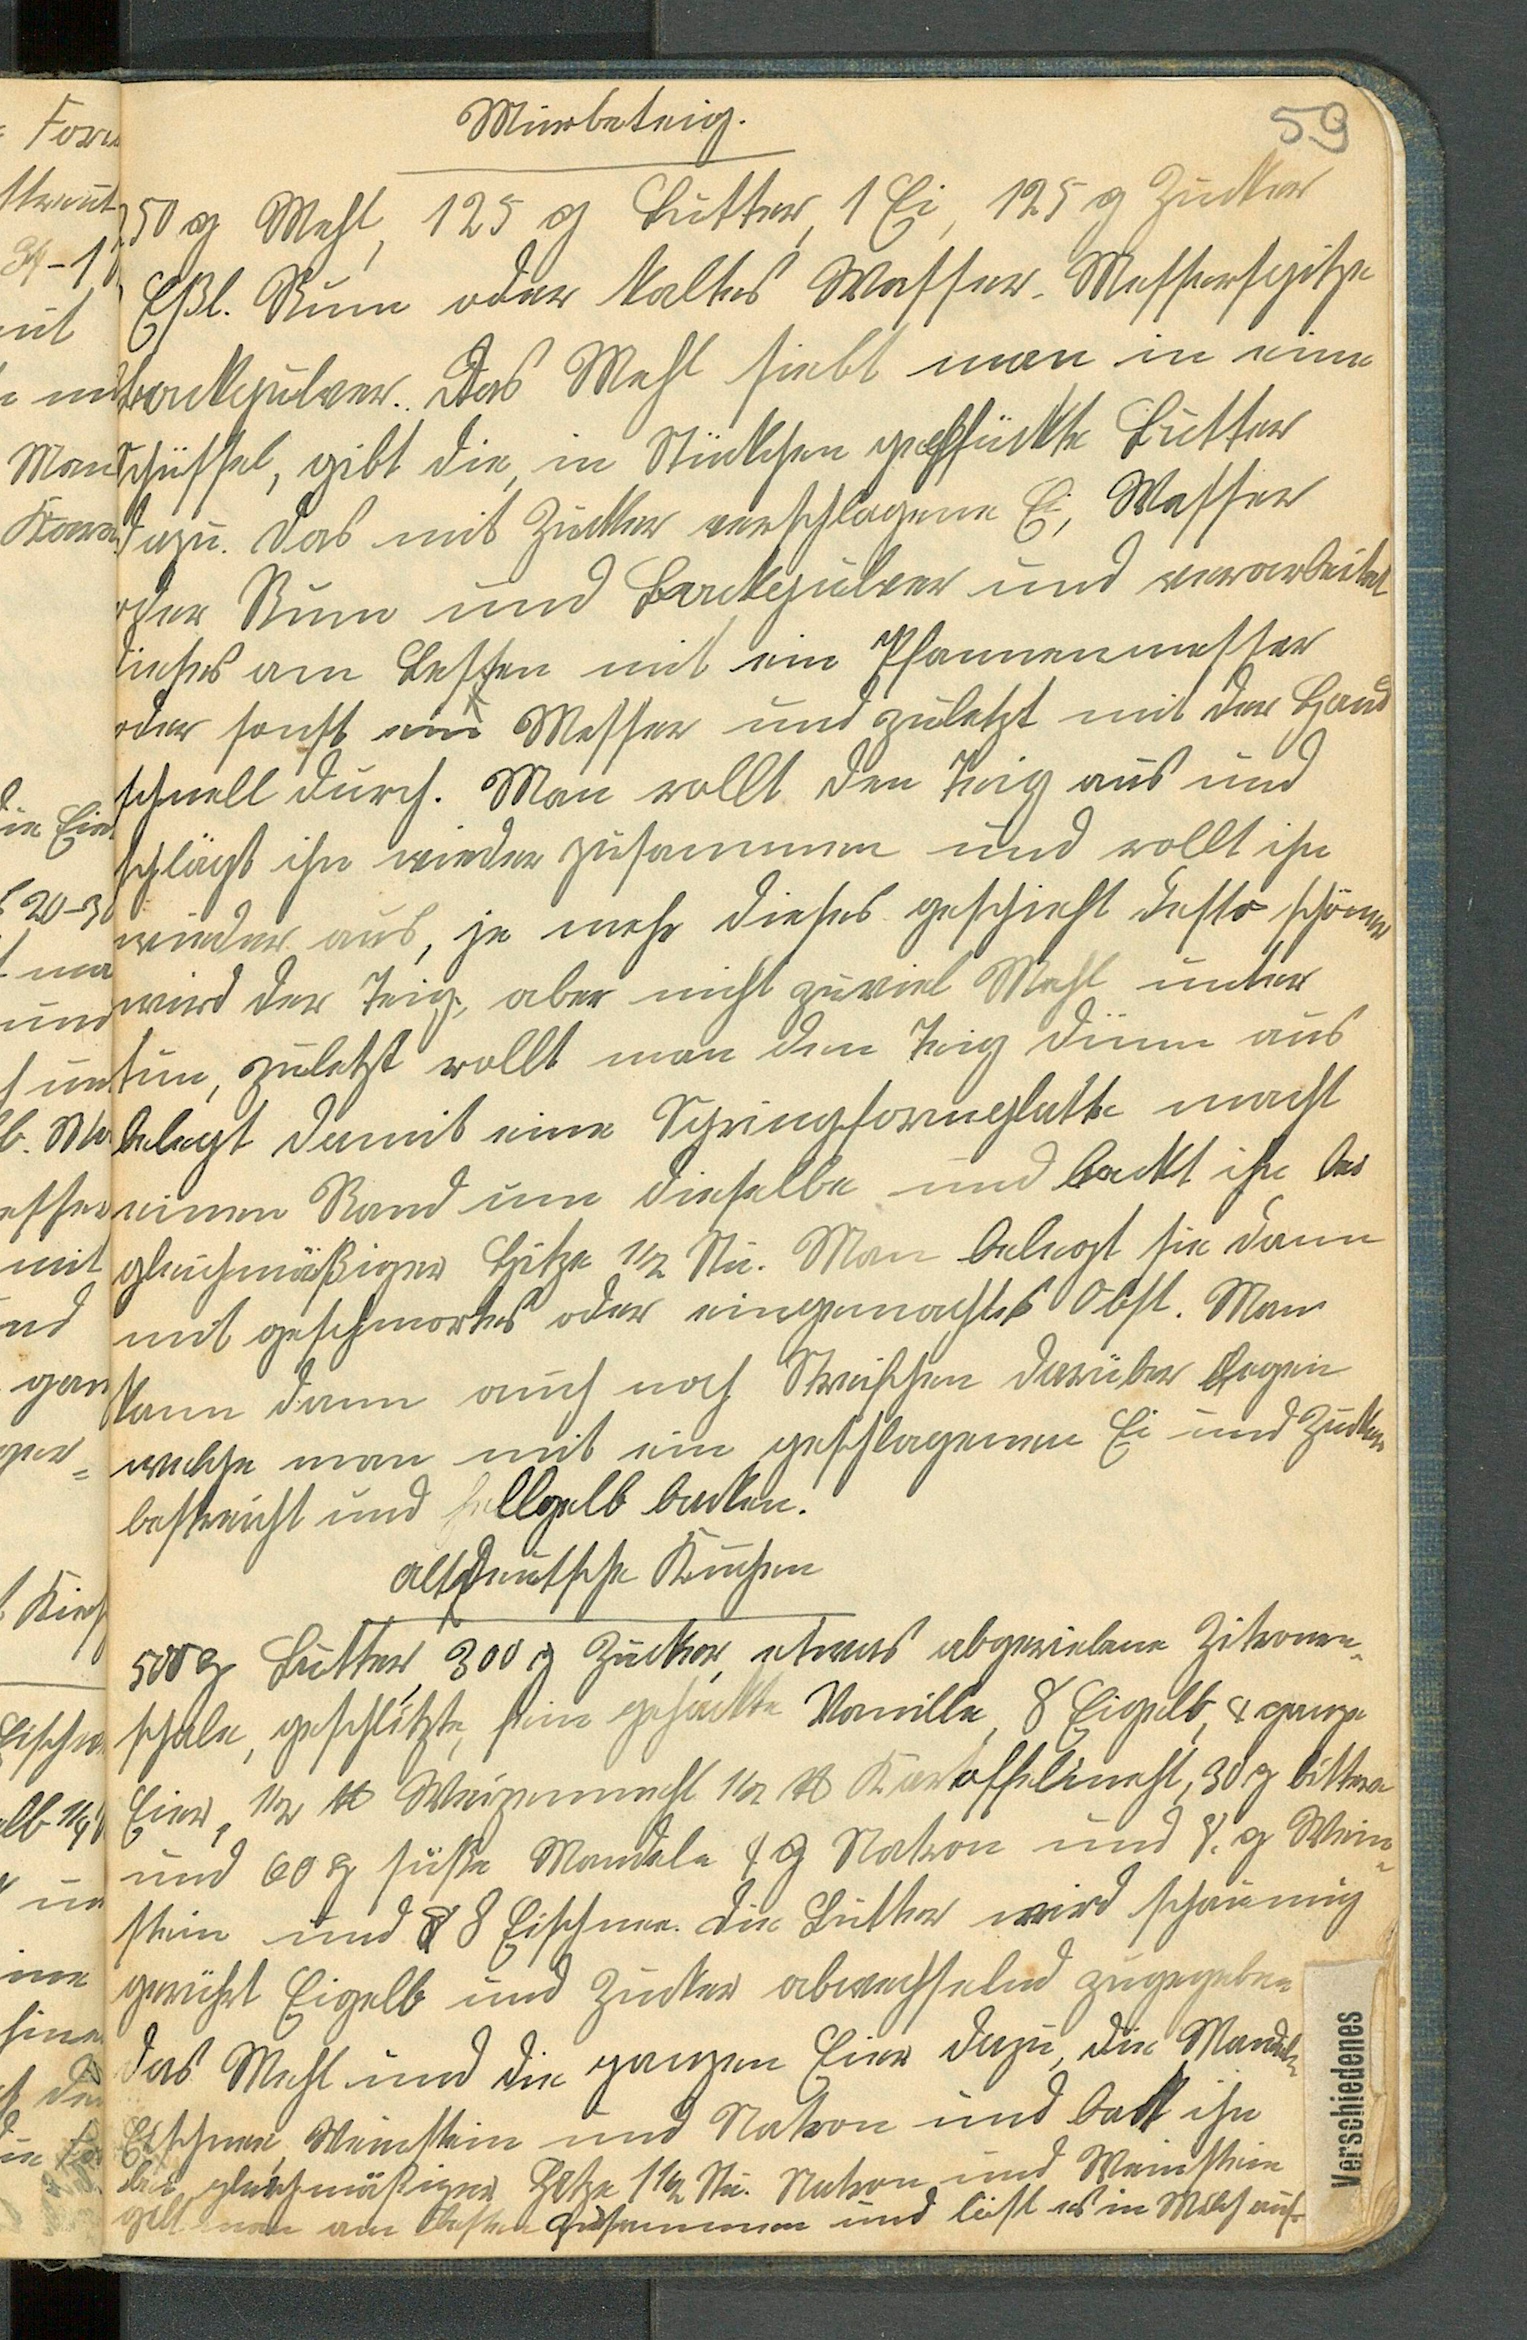 59
Mürbeteig.
250 g Mehl, 125 g Butter, 1 Ei, 125 g Zucker
Eßl. Rum oder kaltes Wasser. Messerspitze
Backpulver. Das Mehl siebt man in eine
Schüssel, gibt die, in Stückchen gepflückte Butter
dazu. das mit Zucker verschlagene Ei, Wasser
oder Rum und Backpulver und verarbeitet
dieses am besten mit ein Pfannenmesser
oder sonst ein Messer und zuletzt mit der Hand
schnell durch. Man rollt den Teig aus und
schlägt ihn wieder zusammen und rollt ihn
wieder aus, je mehr dieses geschieht desto schöner
wird der Teig, aber nicht zuviel Mehl unter
tun, zuletzt rollt man den Teig dünn aus
belegt damit eine Springformplatte macht
einen Rand um dieselbe und backt ihn bei
gleichmäßiger Hitze 1/2 Stu. Man belegt sie dann
mit geschmortes oder eingemachtes Obst. Man
kann dann auch noch Streifchen darüber legen
welche man mit ein geschlagenen Ei und Zucker
bestreicht und hellgelb backen.
altdeutsche Kuchen
500 g Butter, 300 g Zucker, etwas abgeriebene Zitronen-
schale, geschlitzte, fein gehackte Vanille, 8 Eigelb, 4 ganze
Eier, 1/2 ℔ Weizenmehl 1/2 ℔ Kartoffelmehl, 30 g bittere
und 60 g süße Mandeln 4 g Natron und 8 g Wein-
stein und 8 Eischnee. Die Butter wird schaumig
gerührt Eigelb und Zucker abwechselnd zugegeben
das Mehl und die ganzen Eier dazu, die Mandeln
Eischnee, Weinstein und Natron und backt ihn
bei gleichmäßiger Hitze 1 1/2 Stu. Natron und Weinstein
gibt man am besten zusammen und löst es in Milch auf.
Verschiedenes